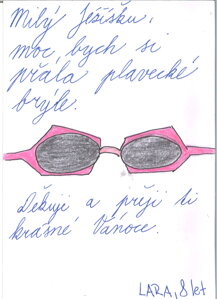 Milý Ježíšku,
moc bych si
přála plavecké
brýle.
Děkuji a přeji ti
krásné Vánoce.
LARA, 8 let